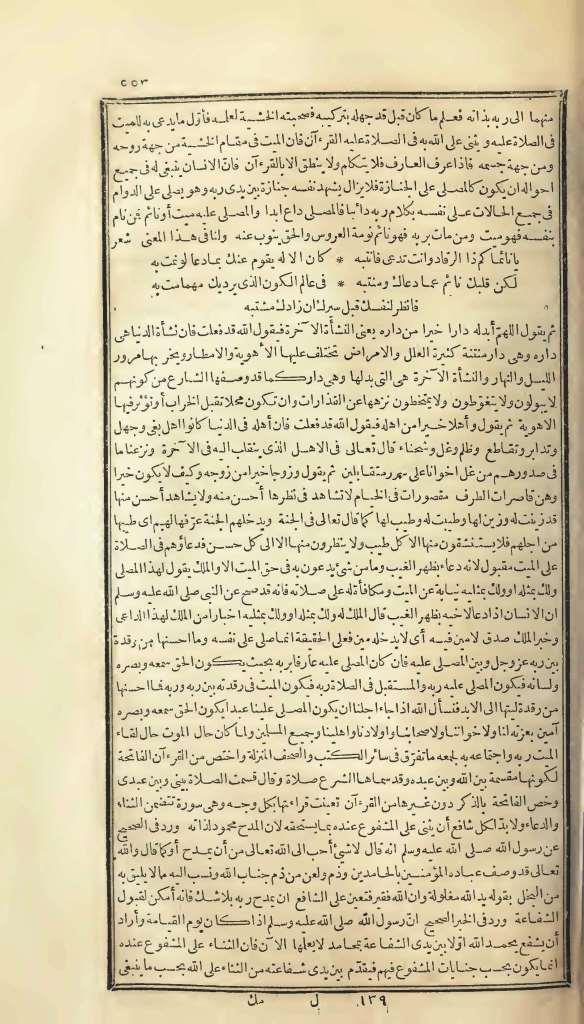 ٥٥٣
منهما الى ربه بذاته فعلم ما كان قبل قد جهله بتركيبه فصحبته الخشية لعلمه فأول ما يدعى به للميت
فى الصلاة عليه ويثنى على الله به فى الصلاة عليه القرءآن فان الميت فى مقام الخشية من جهة روحه
ومن جهة جسمه فاذا عرف العارف فلا يتكلم ولا ينطق الا بالقرءآن فان الانسان ينبغى له فى جميع
احواله ان يكون كالمصلى على الجنازة فلا يزال يشهد نفسه جنازة بين يدى ربه وهو يصلى على الدوام
فى جميع الحالات على نفسه بكلام ربه دائبا فالمصلى داع ابدا والمصلى عليه ميت أو نائم فمن نام
بنفسه فهو ميت ومن مات بربه فهو نائم نومة العروس والحق ينوب عنه ولنا فى هذا المعنى شعر
يا نائما كم ذا الرقاد وانت تدعى فانتبه * كان الاله يقوم عنك بما دعا لو نمت به
لكن قلبك نائم عما دعاك ومنتبه * فى عالم الكون الذى يرديك مهما مت به
فانظر لنفسك قبل سيرك ان زادك مشتبه
ثم يقول اللهم أبدله دارا خيرا من داره يعنى النشأة الآخرة فيقول الله قد فعلت فان نشأة الدنيا هى
داره وهى دار منتنة كثيرة العلل والامراض تختلف عليها الأهوية والامطار ويخربها مرور
الليل والنهار والنشأة الآخرة هى التى بدلها وهى دار كما قد وصفها الشارع من كونهم
لا يبولون ولا يتغوطون ولا يمتخطون نزهها عن القذارات وان تكون محلا تقبل الخراب أو تؤثر فيها
الاهوية ثم يقول وأهلا خيرا من اهله فيقول الله قد فعلت فان أهله فى الدنيا كانوا اهل بغى وجهل
وتدابر وتقاطع وظلم وغل وشحناء قال تعالى فى الاهل الذى ينقلب اليه فى الآخرة ونزعنا ما
فى صدورهم من غل اخوانا على سرر متقابلين ثم يقول وزوجا خيرا من زوجه وكيف لا يكون خيرا
وهن قاصرات الطرف مقصورات فى الخيام لا تشاهد فى نظرها أحسن منه ولا يشاهد أحسن منها
قد زينت له وزين لها وطيبت له وطيب لها كما قال تعالى فى الجنة ويدخلهم الجنة عرفها لهم اى طيبها
من اجلهم فلا يستنشقون منها الا كل طيب ولا ينظرون منها الا الى كل حسن فدعاؤهم فى الصلاة
على الميت مقبول لانه دعاء بظهر الغيب وما من شئ يدعون به فى حق الميت الا والملك يقول لهذا المصلى
ولك بمثله اولك بمثليه نيابة عن الميت ومكافأة له على صلاته فانه قد صح عن النبى صلى الله عليه وسلم
ان الانسان اذا دعا لاخيه بظهر الغيب قال الملك له ولك بمثله اوولك بمثليه اخبارا من الملك لهذا الداعى
وخبر الملك صدق لامين فيه أى لا يدخله مين فعلى الحقيقة انما صلى على نفسه وما احسنها من رقدة
بين ربه عز وجل وبين المصلى عليه فان كان المصلى عليه عارفا بربه بحيث يكون الحق سمعه وبصره
ولسانه فيكون المصلى عليه ربه والمستقبل فى الصلاة ربه فيكون الميت فى رقدته بين ربه وربه فما احسنها
من رقدة ليتها الى الابد فنسأل الله اذا جاء اجلنا ان يكون المصلى علينا عبدا يكون الحق سمعه وبصره
آمين بعزته لنا ولاخواننا ولاصحابنا واولادنا واهلينا وجميع المسلمين ولما كان حال الموت حال لقاء
الميت ربه واجتماعه به لجمعه ما تفرق فى سائر الكتب والصحف المنزلة واختص من القرءآن الفاتحة
لكونها مقسمة بين الله وبين عبده وقد سماها الشرع صلاة وقال قسمت الصلاة بينى وبين عبدى
وخص الفاتحة بالذكر دون غيرها من القرءآن تعينت قراءتها بكل وجه وهى سورة تتضمن الثناء
والدعاء ولا بد لكل شافع أن يثنى على المشفوع عنده بما يستحقه لان المدح محمود لذاته ورد فى الصحيح
عن رسول الله صلى الله عليه وسلم انه قال لا شئ أحب الى الله تعالى من أن يمدح أو كما قال والله
تعالى قد وصف عباده المؤمنين بالحامدين وذم ولعن من ذم جناب الله ونسب اليه ما لا يليق به
من البخل بقوله يد الله مغلولة وان الله فقير فتعين على الشافع ان يمدح ربه بلا شك فانه أمكن لقبول
الشفاعة ورد فى الخبر الصحيح ان رسول الله صلى الله عليه وسلم اذا كان يوم القيامة وأراد
أن يشفع يحمد الله اولا بين يدى الشفاعة بمحامد لا يعلمها الآن فان الثناء على المشفوع عنده
انما يكون بحسب جنايات المشفوع فيهم فيقدم بين يدى شفاعته من الثناء على الله بحسب ما ينبغى
١٣٩ ل مك